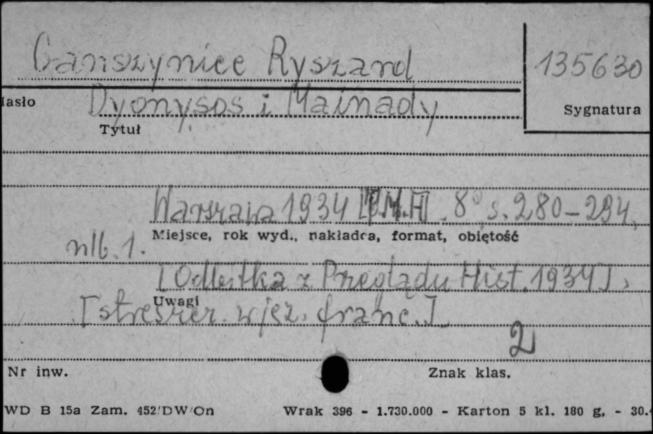 Ganszyniec Ryszard 135630
Hasło Dyonysos i Mainady Sygnatura
Tytuł
Warszawa 1934 [T.M.H]. 8° s. 280-294,
Miejsce, rok wyd., nakładca, format, objętość
nlb. 1.
[Odbitka z Przeglądu Hist. 1934].
Uwagi
[streszcz. w jęz. franc.]
2
Nr inw. Znak klas.
WD B 15a Zam. 452/DW/On Wrak 396 - 1.730.000 - Karton 5 kl. 180 g. - 30.